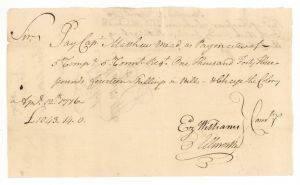 Sir,
Pay Capt Matthew Mead, as Paymaster of
5 Compy 5 Regt One Thousand Forty three
pounds fourteen Shilling in Bills & Charge the Colony
Apr 12th 1776
£1043.14.0
Ezr Williams
Comtee